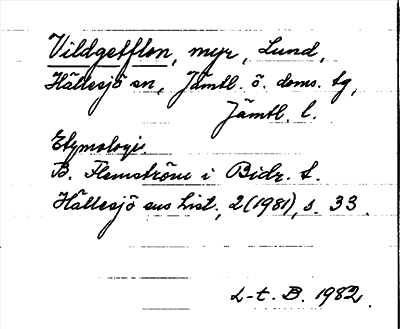 Vildgetflon, myr, Lund,
Hällesjö sn, Jämtl. ö. doms. tg,
Jämtl. l.
Etymologi.
B. Flemström i Bidr. t.
Hällesjö sns hist., 2 (1981), s. 33.
L-t. B. 1982.